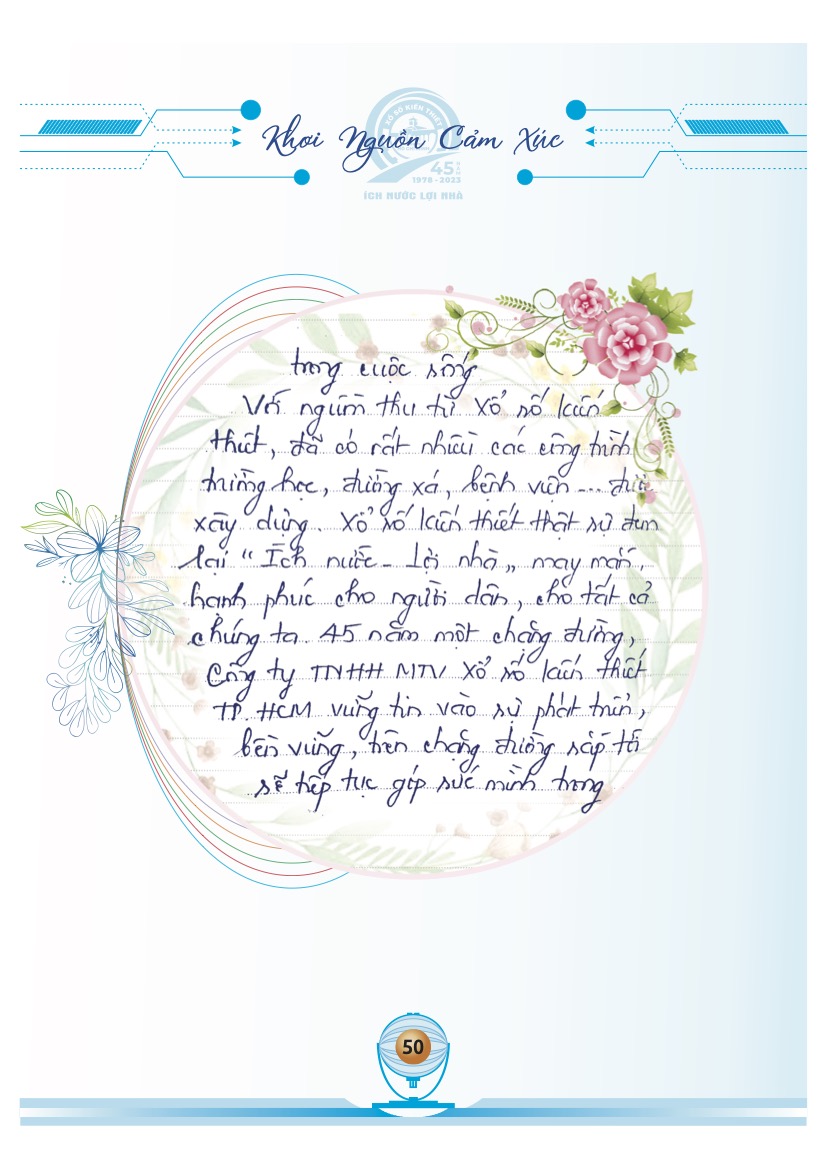 Khơi Nguồn Cảm Xúc
XỔ SỐ KIẾN THIẾT
45 NĂM
1978 - 2023
ÍCH NƯỚC LỢI NHÀ
trong cuộc sống
Với nguồn thu từ xổ số kiến
thiết, đã có rất nhiều các công trình
trường học, đường xá, bệnh viện ... được
xây dựng. Xổ số kiến thiết thật sự đem
lại “Ích nước - Lợi nhà„ may mắn,
hạnh phúc cho người dân, cho tất cả
chúng ta. 45 năm một chặng đường,
Công ty TNHH MTV Xổ số kiến thiết
TP. HCM vững tin vào sự phát triển,
bền vững, trên chặng đường sắp tới
sẽ tiếp tục góp sức mình trong
50